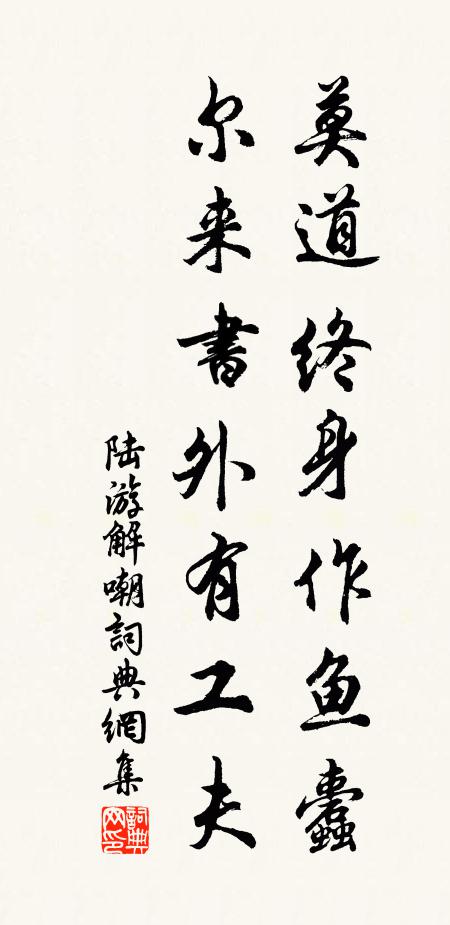 莫道终身作鱼蠹
尔来書外有工夫
陆游解嘲詞典網集
詞典
网印